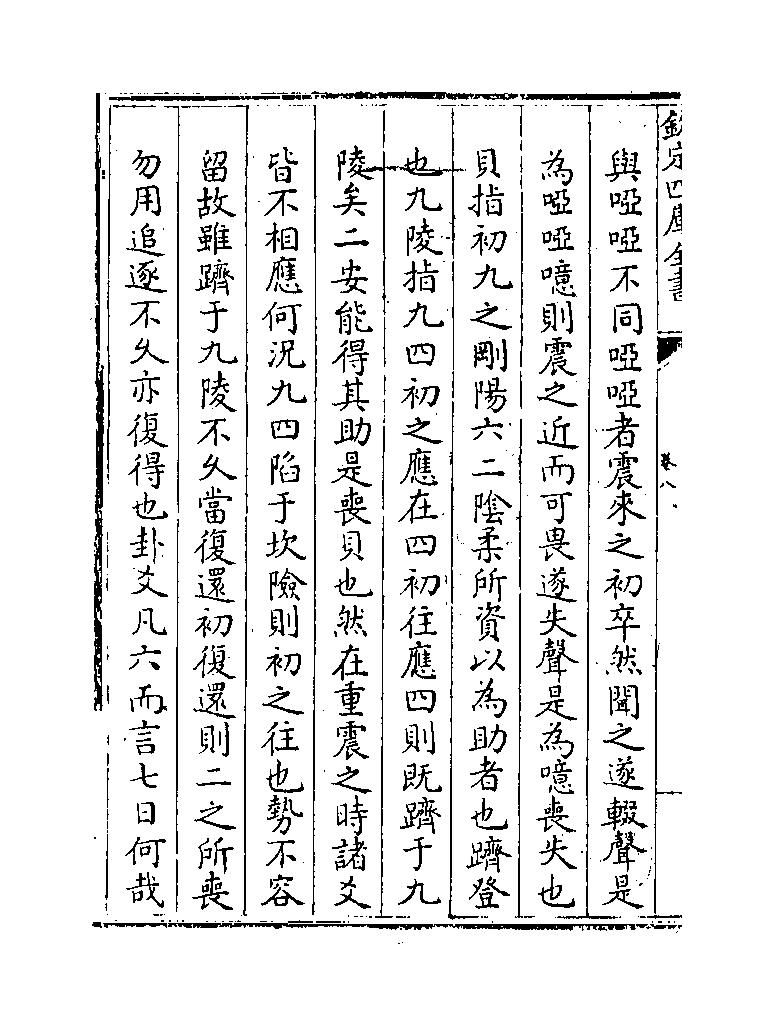 欽定四庫全書
卷八
與啞啞不同啞啞者震來之初卒然聞之遂輟聲是
為啞啞噫則震之近而可畏遂失聲是為噫喪失也
貝指初九之剛陽六二陰柔所資以為助者也躋登
也九陵指九四初之應在四初往應四則既躋于九
陵矣二安能得其助是喪貝也然在重震之時諸爻
皆不相應何況九四陷于坎險則初之往也勢不容
留故雖躋于九陵不久當復還初復還則二之所喪
勿用追逐不久亦復得也卦爻凡六而言七日何哉